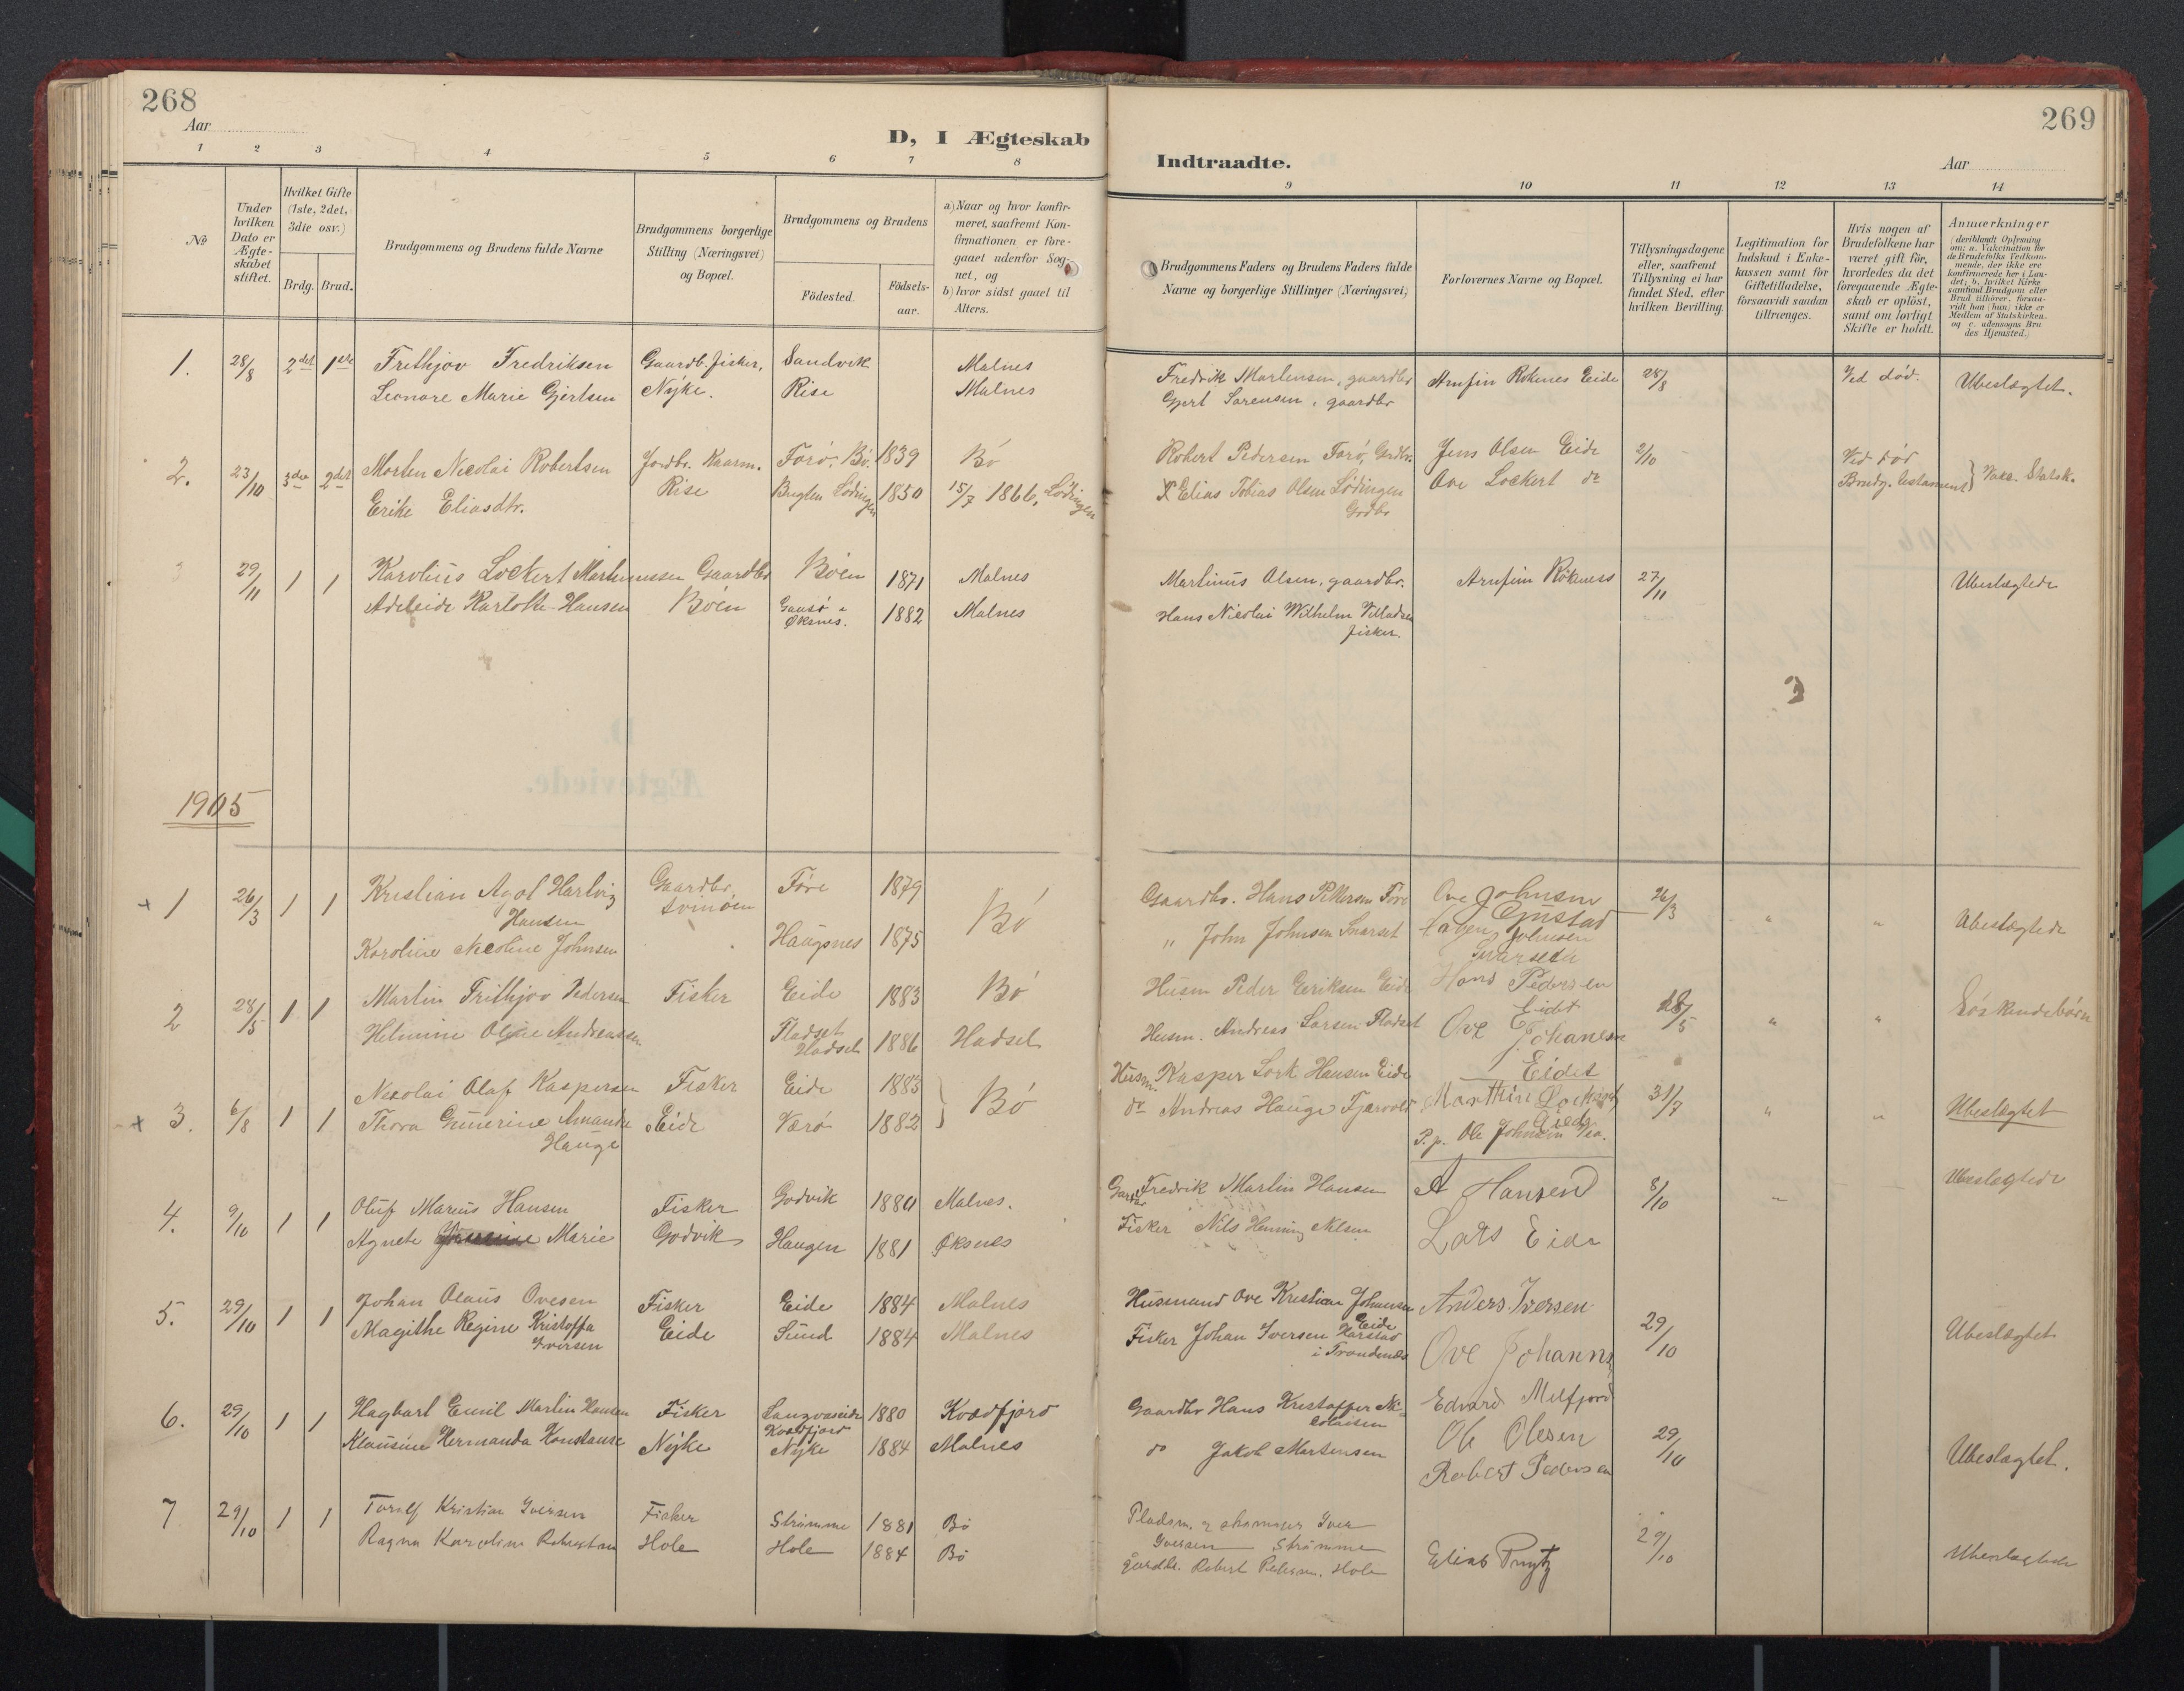 268
Aar
D, I Ægteskab
1 2 3 4 5 6 7 8
№
Under hvilken Dato er Ægte-skabet stiftet.
Hvilket Gifte (1ste, 2det, 3die osv.)
Brdg. Brud.
Brudgommens og Brudens fulde Navne
Brudgommens borgerlige Stilling (Næringsvei) og Bopæl.
Brudgommens og Brudens
Födested.
Födsels-aar.
a) Naar og hvor konfir-
meret, saafremt Kon-
firmationen er fore-
gaaet udenfor Sog-
net, og
b) hvor sidst gaaet til
Alters.
1. 28/8 2det 1ste Frithjov Fredriksen Gaardb. fisker, Sandvik Malnes
Leonare Marie Gjertsen Nyke. Rise Malnes
2. 23/10 3die 2det Morten Nicolai Robertsen Jordbr. Kaarm. Forö, Bö. 1839 Bö
Erike Eliasdtr. Rise Bugten Lödingen 1850 15/7 1866, Lödingen
3 29/11 1 1 Karolius Lockert Martinussen Gaardbr Böen 1871 Malnes
Adeleide Karlotte Hansen Böen Gaasö Øksnes. 1882 Malnes
1905
+ 1 26/3 1 1 Kristian Agol Hartvig Gaardbr. Före 1879 Bö
Hansen Svinöen
Karoline Nicoline Johnsen Haugsnes 1875
2 28/5 1 1 Martin Frithjov Pedersen Fisker Eide 1883 Bö
Helmine Oline Andreassen Fladset Hadsel 1886 Hadsel
+ 3. 6/8 1 1 Nikolai Olaf Kaspersen Fisker Eide 1883 } Bö
Thora Gunerine Amanda Eide Værö 1882
Hauge
4. 9/10 1 1 Oluf Marius Hansen Fisker Godvik 1880 Malnes.
Agnete Marie Godvik Haugen 1881 Øksnes
5. 29/10 1 1 Johan Olaus Ovesen Fisker Eide 1884 Malnes
Magithe Regine Kristoffa Eide Sund 1884 Malnes
Iversen
6. 29/10 1 1 Hagbart Emil Martin Hansen Fisker Langvaseide Kvædfjord 1880 Kvædfjord
Klausine Hermanda Konstanse Nyke Nyke 1884 Malnes
7 29/10 1 1 Toralf Kristian Iversen Fisker Strömme 1881 Bö
Ragna Karoline Robertsen Hole Hole 1884 Bö
269
Indtraadte.
Aar
9 10 11 12 13 14
Brudgommens Faders og Brudens Faders fulde
Navne og borgerlige Stillinger (Næringsvei.)
Forlovernes Navne og Bopæl.
Tillysningsdagene
eller, saafremt
Tillysning ei har
fundet Sted, efter
hvilken Bevilling.
Legitimation for
Indskud i Enke-
kassen samt för
Giftetilladelse,
forsaavidt saadan
tiltrænges.
Hvis nogen af
Brudefolkene har
været gift för,
hvorledes da det
foregaaende Ægte-
skab er oplöst,
samt om lovligt
Skifte er holdt.
Anmærkninger
(deriblandt Oplysning
om: a. Vakcination for
de Brudefolks Vedkom-
mende, der ikke ere
konfirmerede her i Lan-
det; b. hvilket Kirke
samfund Brudgom eller
Brud tilhörer, forsaa-
vidt han (hun) ikke er
Medlem af Statskirken.
og c. udensogns Bru
des Hjemsted.)
Fredrik Martensen, gaardbr Arnfin Röknes Eide 28/8 Ved död. Ubeslægtet.
Gjert Sørensen, gaardbr
Robert Pedersen Forö, Grdbr. Jens Olsen Eide 2/10 Ved död
X Elias Tobias Olsen Lödingen Ove Lockert do Brudg. testament } Vacc. Statsk.
Grdbr
Martinus Olsen, gaardbr. Arnfinn Rökness 27/11 Ubeslægtede
Hans Nicolai Wilhelm Villadsen
fisker.
3
Gaardbr. Hans Pettersen Före Ove Johnsen 26/3 " " Ubeslægtede
" John Johnsen Snarset Hagen Johnsen
Husm Peder Eriksen Eide Hans Pedersen Eidet 28/5 " " Söskendebörn
Husm. Andreas Larsen Fladset Ove Johansen
Eidet
Husm. Kasper Lork Hansen Eide Marthin Lockert Eide 31/7 " " Ubeslægtet
do Andreas Hauge Fjærvoll P.p. Ole Johnsen
Gardbr Fredrik Martin Hansen A Hansen 8/10 " Ubeslægtede
Fisker Nils Henning Nilsen Lars Eide
Husmand Ove Kristian Johansen Anders Iversen 29/10 Ubeslægtet
Eide
Fisker Johan Iversen Harstad Ove Johanns
i Trondenæs
Gaardbr Hans Kristoffer Ni- Edvard Melfjord 29/10 Ubeslægtet.
colaisen Ole Olesen
do Jakob Martensen Robert Pedersen
Pladsm. & Iver
Iversen Strömme 29/10 Ubeslægtede
gardbr. Robert Pedersen. Hole Elias Prytz